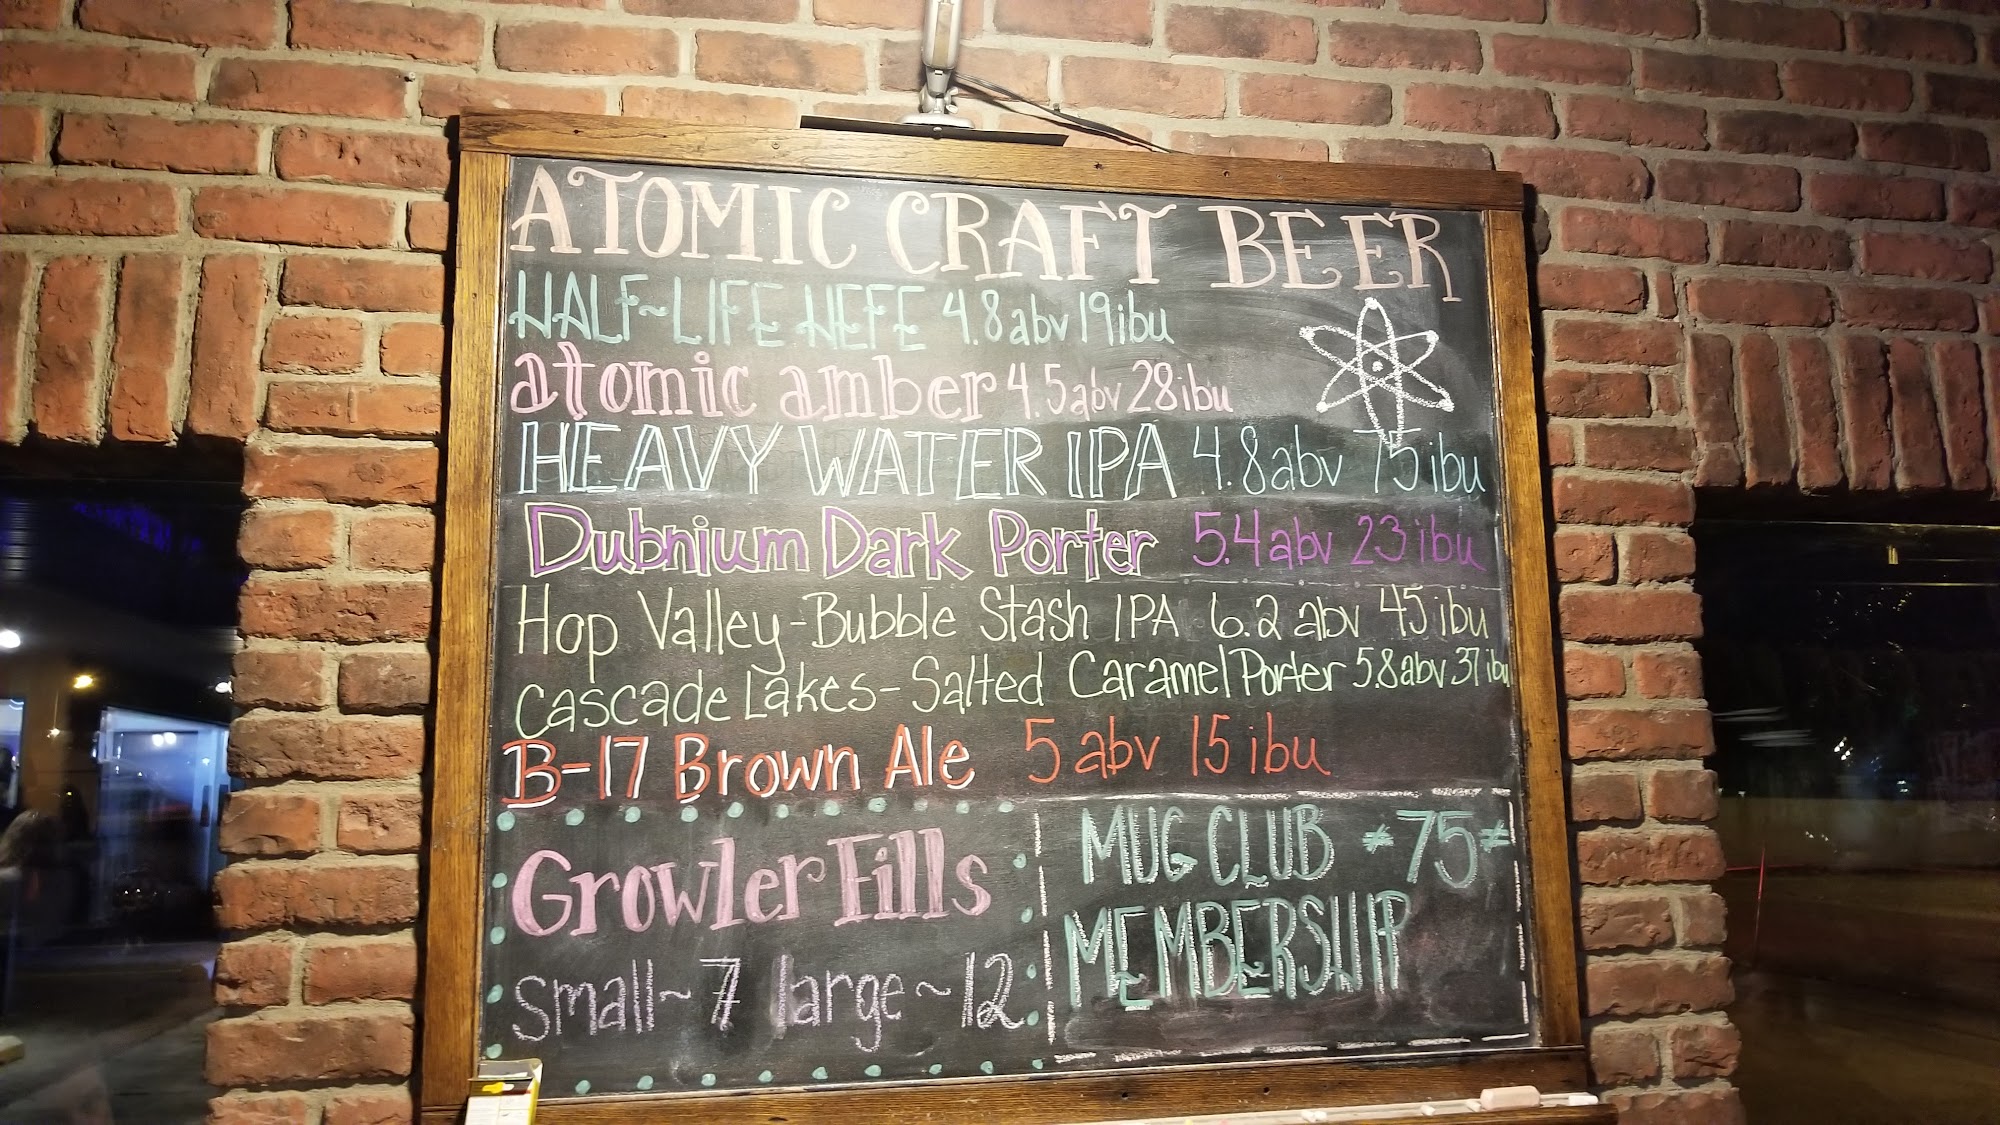 ATOMIC CRAFT BEER
HALF~LIFE HEFE 4.8 abv 19 ibu
atomic amber 4.5 abv 28 ibu
HEAVY WATER IPA 4.8 abv 75 ibu
Dubnium Dark Porter 5.4 abv 23 ibu
Hop Valley-Bubble Stash IPA 6.2 abv 45 ibu
Cascade Lakes-Salted Caramel Porter 5.8 abv 37 ibu
B-17 Brown Ale 5 abv 15 ibu
Growler Fills
small~7 large~12
MUG CLUB ≠75≠
MEMBERSHIP